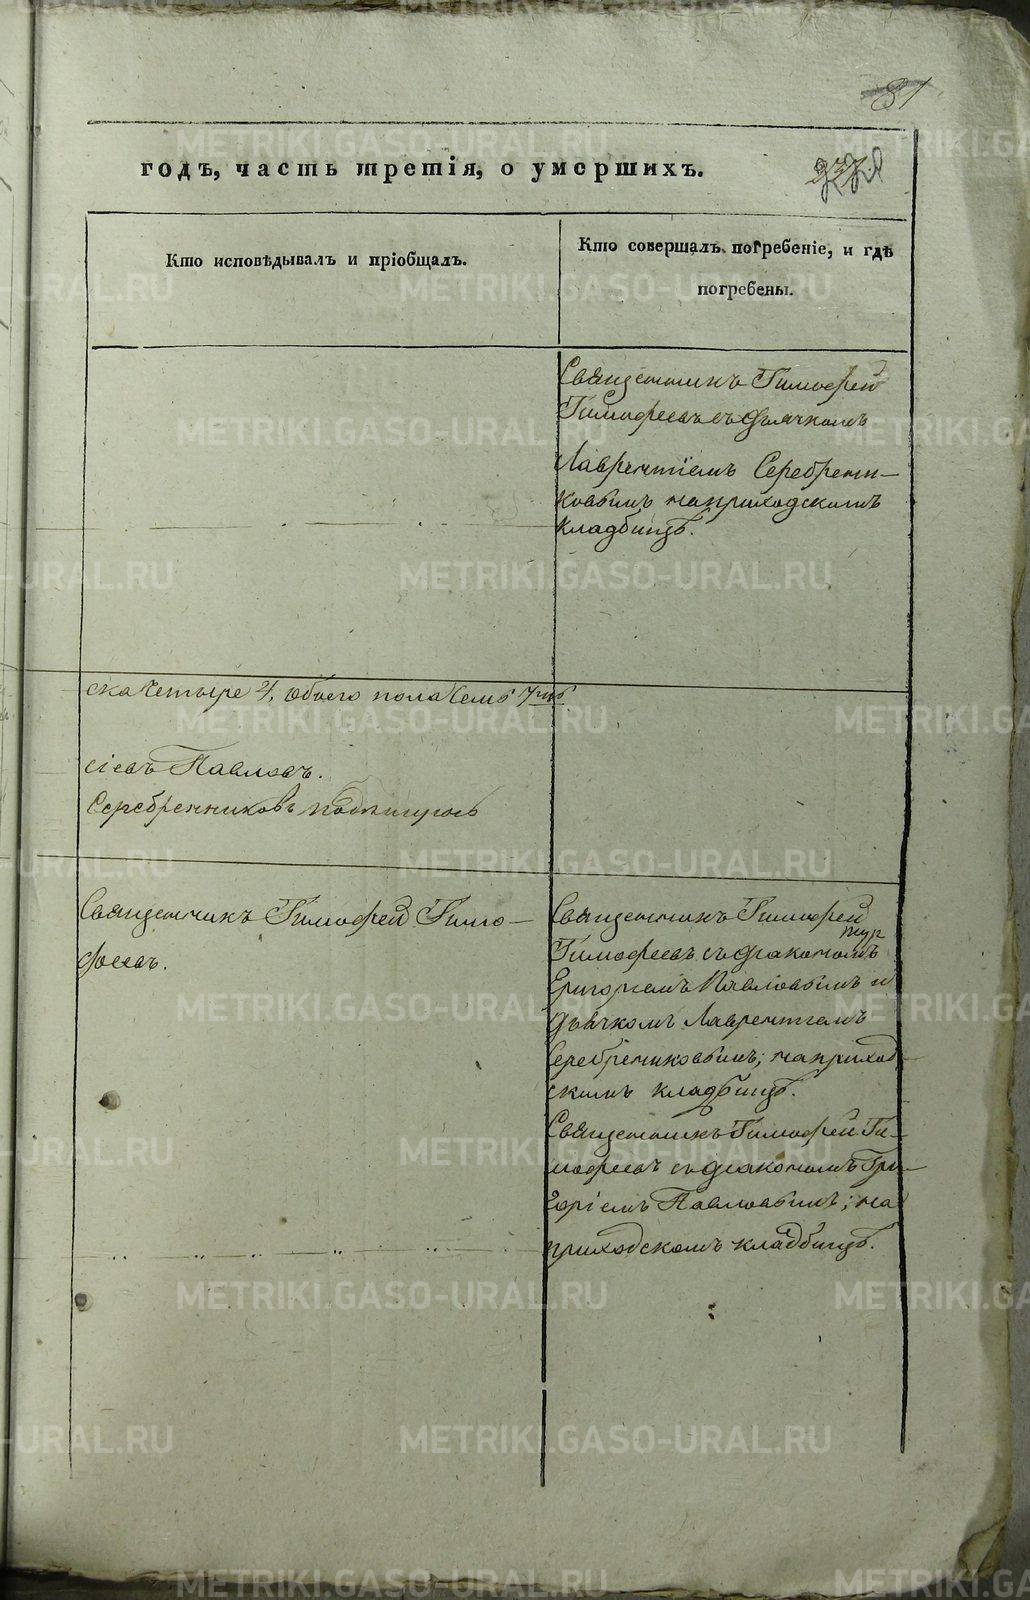 81
годъ, часть третія, о умершихъ.
Кто исповѣдывалъ и пріобщалъ.
Кто совершалъ погребеніе, и гдѣ
погребены.
Священникъ Тимофей
Тимофеевъ съ дьячкомъ
Лаврентіемъ Серебрени-
ковымъ на приходскомъ
кладбищѣ.
ска четыре 4, обоего пола семь 7мь
сіевъ Павловъ.
Серебренниковъ подпишуюсь
Священникъ Тимофей Тимо-
феевъ.
Священникъ Тимофей
Тимофеевъ съ діакономъ
Григоріемъ Павловымъ и
дьячкомъ Лаврентіемъ
Серебрениковымъ; на приход-
скомъ кладбищѣ.
Священникъ Тимофей Ти-
мофеевъ съ діакономъ Гри-
горіемъ Павловымъ; на
приходскомъ кладбищѣ.
METRIKI.GASO-URAL.RU